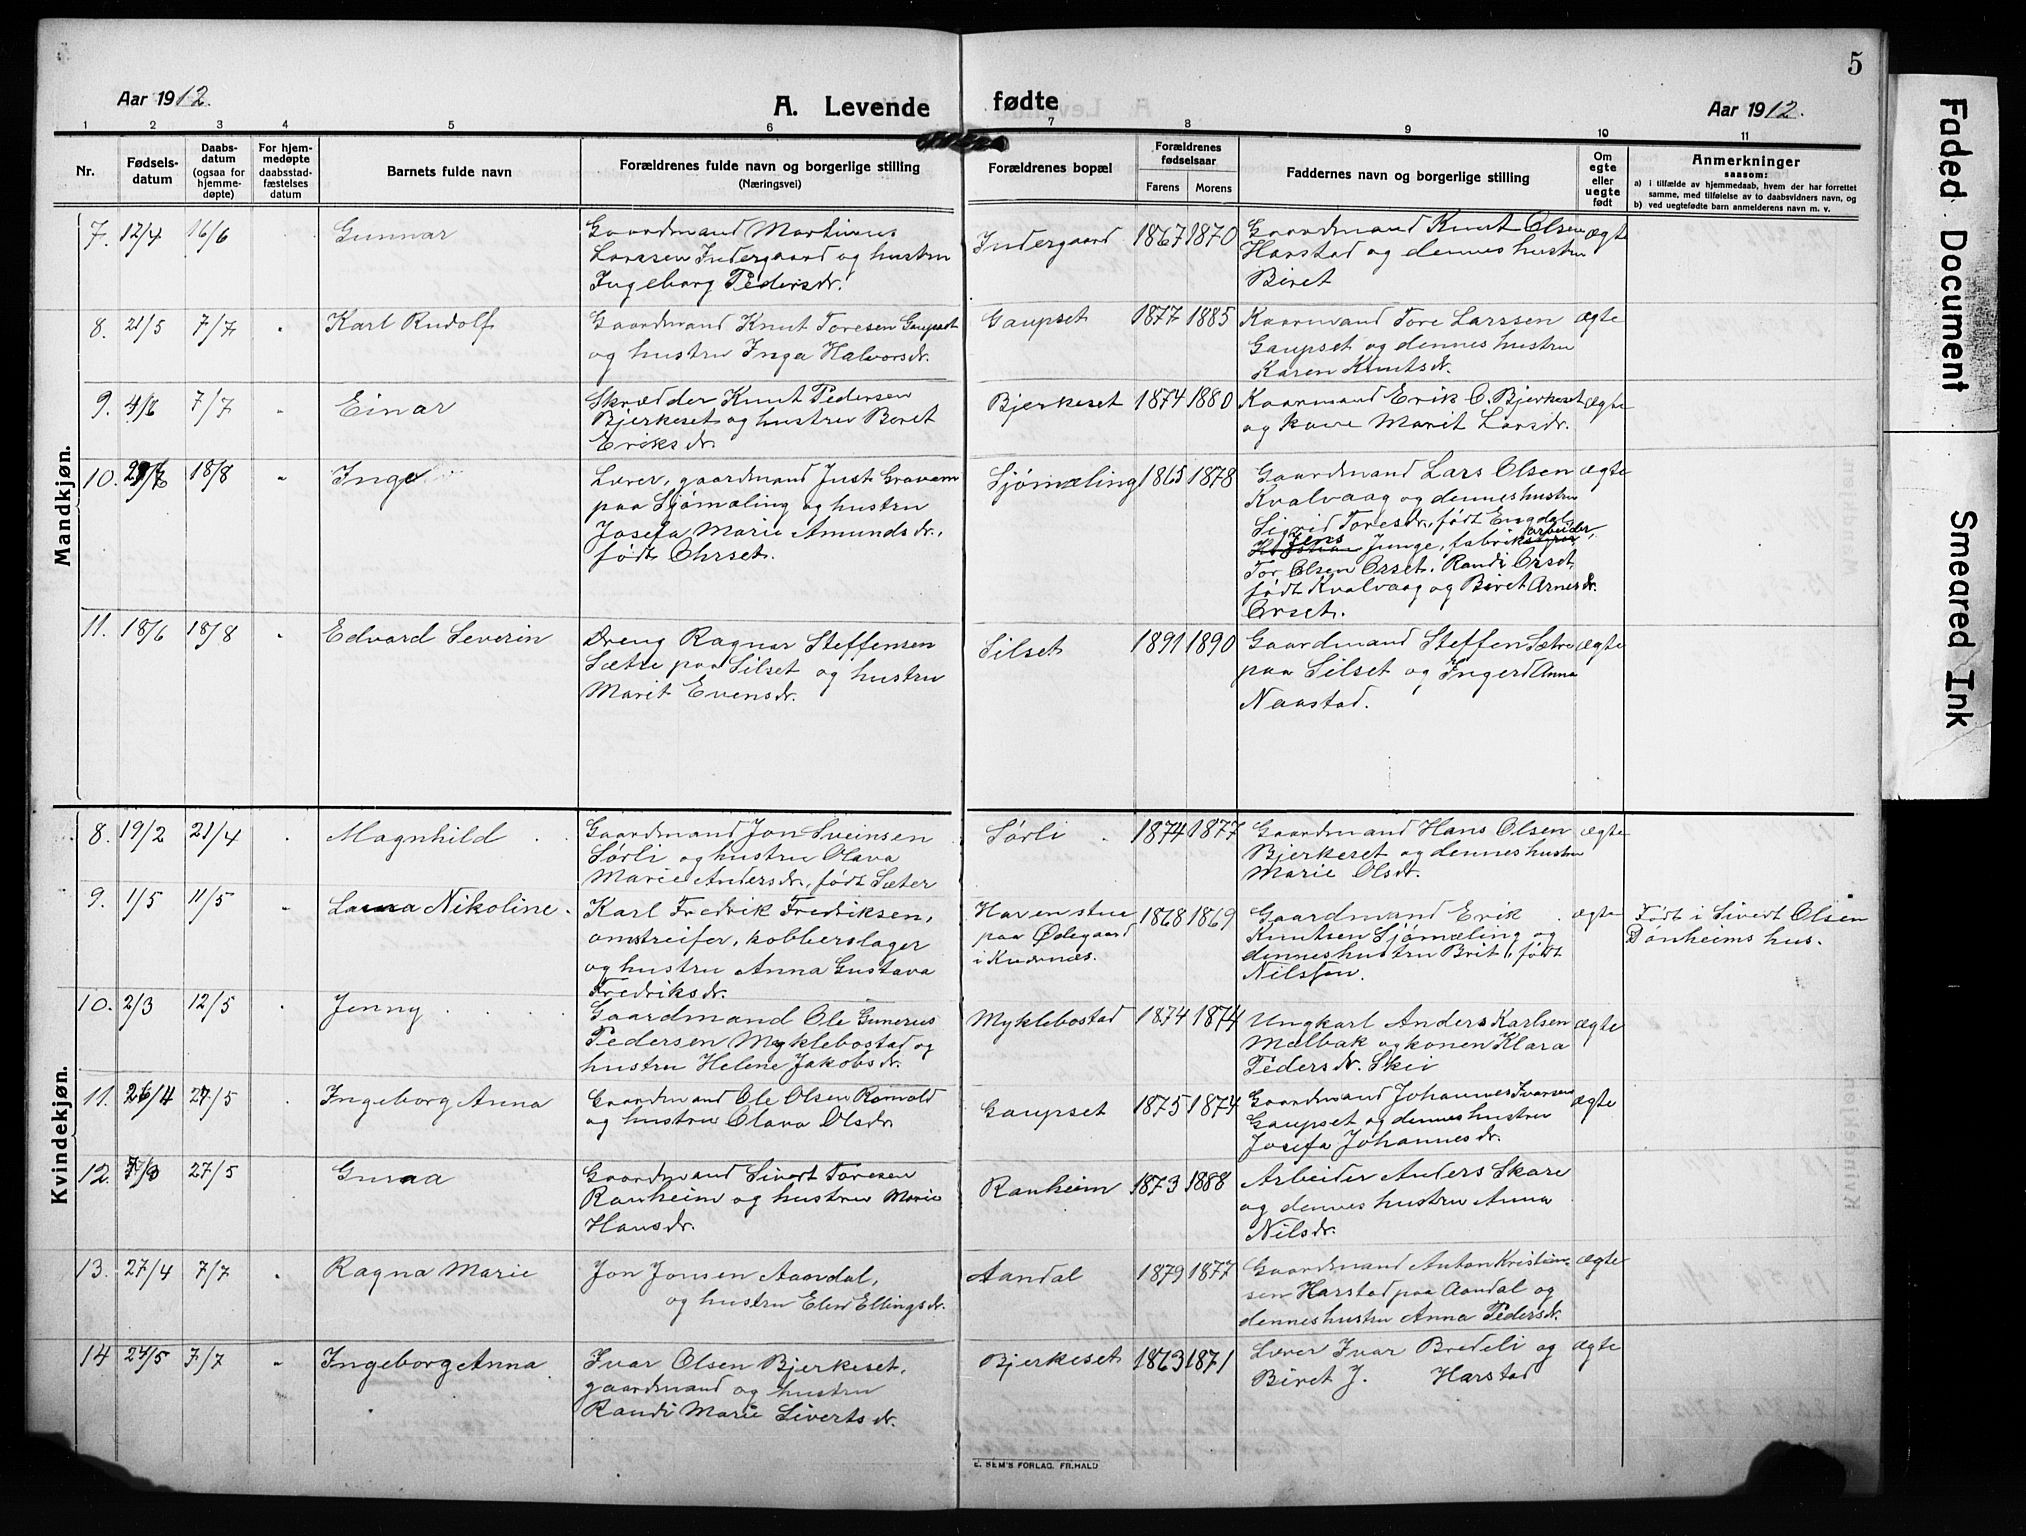 5
Aar 1912.
A. Levende
fødte
Aar 1912.
1 2 3 4 5 6 7 8 9 10 11
Nr.
Fødsels-
datum
Daabs-
datum
(ogsaa for
hjemme-
døpte)
For hjem-
medøpte
daabsstad-
fæstelses
datum
Barnets fulde navn
Forældrenes fulde navn og borgerlige stilling
(Næringsvei)
Forældrenes bopæl
Forældrenes
fødselsaar
Farens
Morens
Faddernes navn og borgerlige stilling
Om
egte
eller
uegte
født
Anmerkninger
saasom:
a) i tilfælde av hjemmedaab, hvem der har forrettet
samme, med tilføielse av to daabsvidners navn, og
b) ved uegtefødte barn anmelderens navn m. v.
Mandkjøn.
7. 12/4 16/6 Gunnar
Gaardmand Martinus
Larssen Indergaard og hustru
Ingeborg Pedersdr.
Indergaard 1867 1870
Gaardmand Knut Olsen
Harstad og dennes hustru
Beret
ægte
8. 21/5 7/7 " Karl Rudolf
Gaardmand Knut Toresen Gaupset
og hustru Inga Halvorsdr.
Gaupset 1877 1885
Kaarmand Tore Larssen
Gaupset og dennes hustru
Karen Knutsdr.
ægte
9. 4/6 7/7 " Einar
Skrædder Knut Pedersen
Bjerkeset og hustru Beret
Eriksdr.
Bjerkeset 1874 1880
Kaarmand Erik O. Bjerkeset
og kone Marit Larsdr.
ægte
10. 18/8 " Inge
Lærer, gaardmand Just Gravem
paa Sjømæling og hustru
Josefa Marie Amundsdr.,
født Ohrset.
Sjømæling 1865 1878
Gaardmand Lars Olsen
Kvalvaag og dennes hustru
Sigrid Toresdr., født Engdal,
Jens Junge, fabrikarbeider,
Tor Olsen Orset. Randi Orset,
født Kvalvaag og Beret Arnesdr.
Orset.
ægte
11. 18/6 18/8 " Edvard Severin
Dreng Ragnar Steffensen
Sætre paa Silset og hustru
Marit Evensdr.
Silset 1891 1890
Gaardmand Steffen Sætre
paa Silset og Ingerd Anna
Naastad.
ægte
Kvindekjøn.
8. 19/2 21/4 " Magnhild
Gaardmand Jon Sveinsen
Sørli og hustru Olava
Marie Andersdr., født Sæter
Sørli 1874 1877
Gaardmand Hans Olsen
Bjerkeset og dennes hustru
Marie Olsdr.
ægte
9. 1/5 11/5 " Laura Nikoline.
Karl Fredrik Fredriksen,
omstreifer, kobberslager
og hustru Anna Gustava
Fredriksdr.
Havenstue
paa Ødegaard
i Kvernæs.
1868 1869
Gaardmand Erik
Knutsen Sjømæling og
dennes hustru Brit, født
Nilssen.
ægte
Født i Sivert Olsen
Dønheims hus.
10. 2/3 12/5 " Jenny
Gaardmand Ole Gunerius
Pedersen Myklebostad og
hustru Helene Jakobsdr.
Myklebostad 1874 1874
Ungkarl Anders Karlsen
Melbak og konen Klara
Pedersdr. Skei
ægte
11. 26/4 27/5 " Ingeborg Anna
Gaardmand Ole Olsen Romold
og hustru Olava Olsdr.
Gaupset 1875 1874
Gaardmand Johannes Ivarsen
Gaupset og dennes hustru
Josefa Johannesdr.
ægte
12. 27/5
Gaardmand Sivert Toresen
Ranheim og hustru Marie
Hansdr.
Ranheim 1873 1888
Arbeider Anders Skare
og dennes hustru Anna
Nilsdr.
13. 27/4 7/7 " Ragna Marie
Jon Jonsen Aandal,
og hustru Elen Ellingsdr.
Aandal 1879 1877
Gaardmand Anton Kristian-
sen Harstad paa Aandal og
dennes hustru Anna Pedersdr.
ægte
14 24/5 7/7 " Ingeborg Anna
Ivar Olsen Bjerkeset,
gaardmand og hustru
Randi Marie Sivertsdr.
Bjerkeset 1863 1871
Lærer Ivar Bredeli og
Beret J. Harstad
ægte
E. SEM'S FORLAG. FR.HALD
Faded Document
Smeared Ink